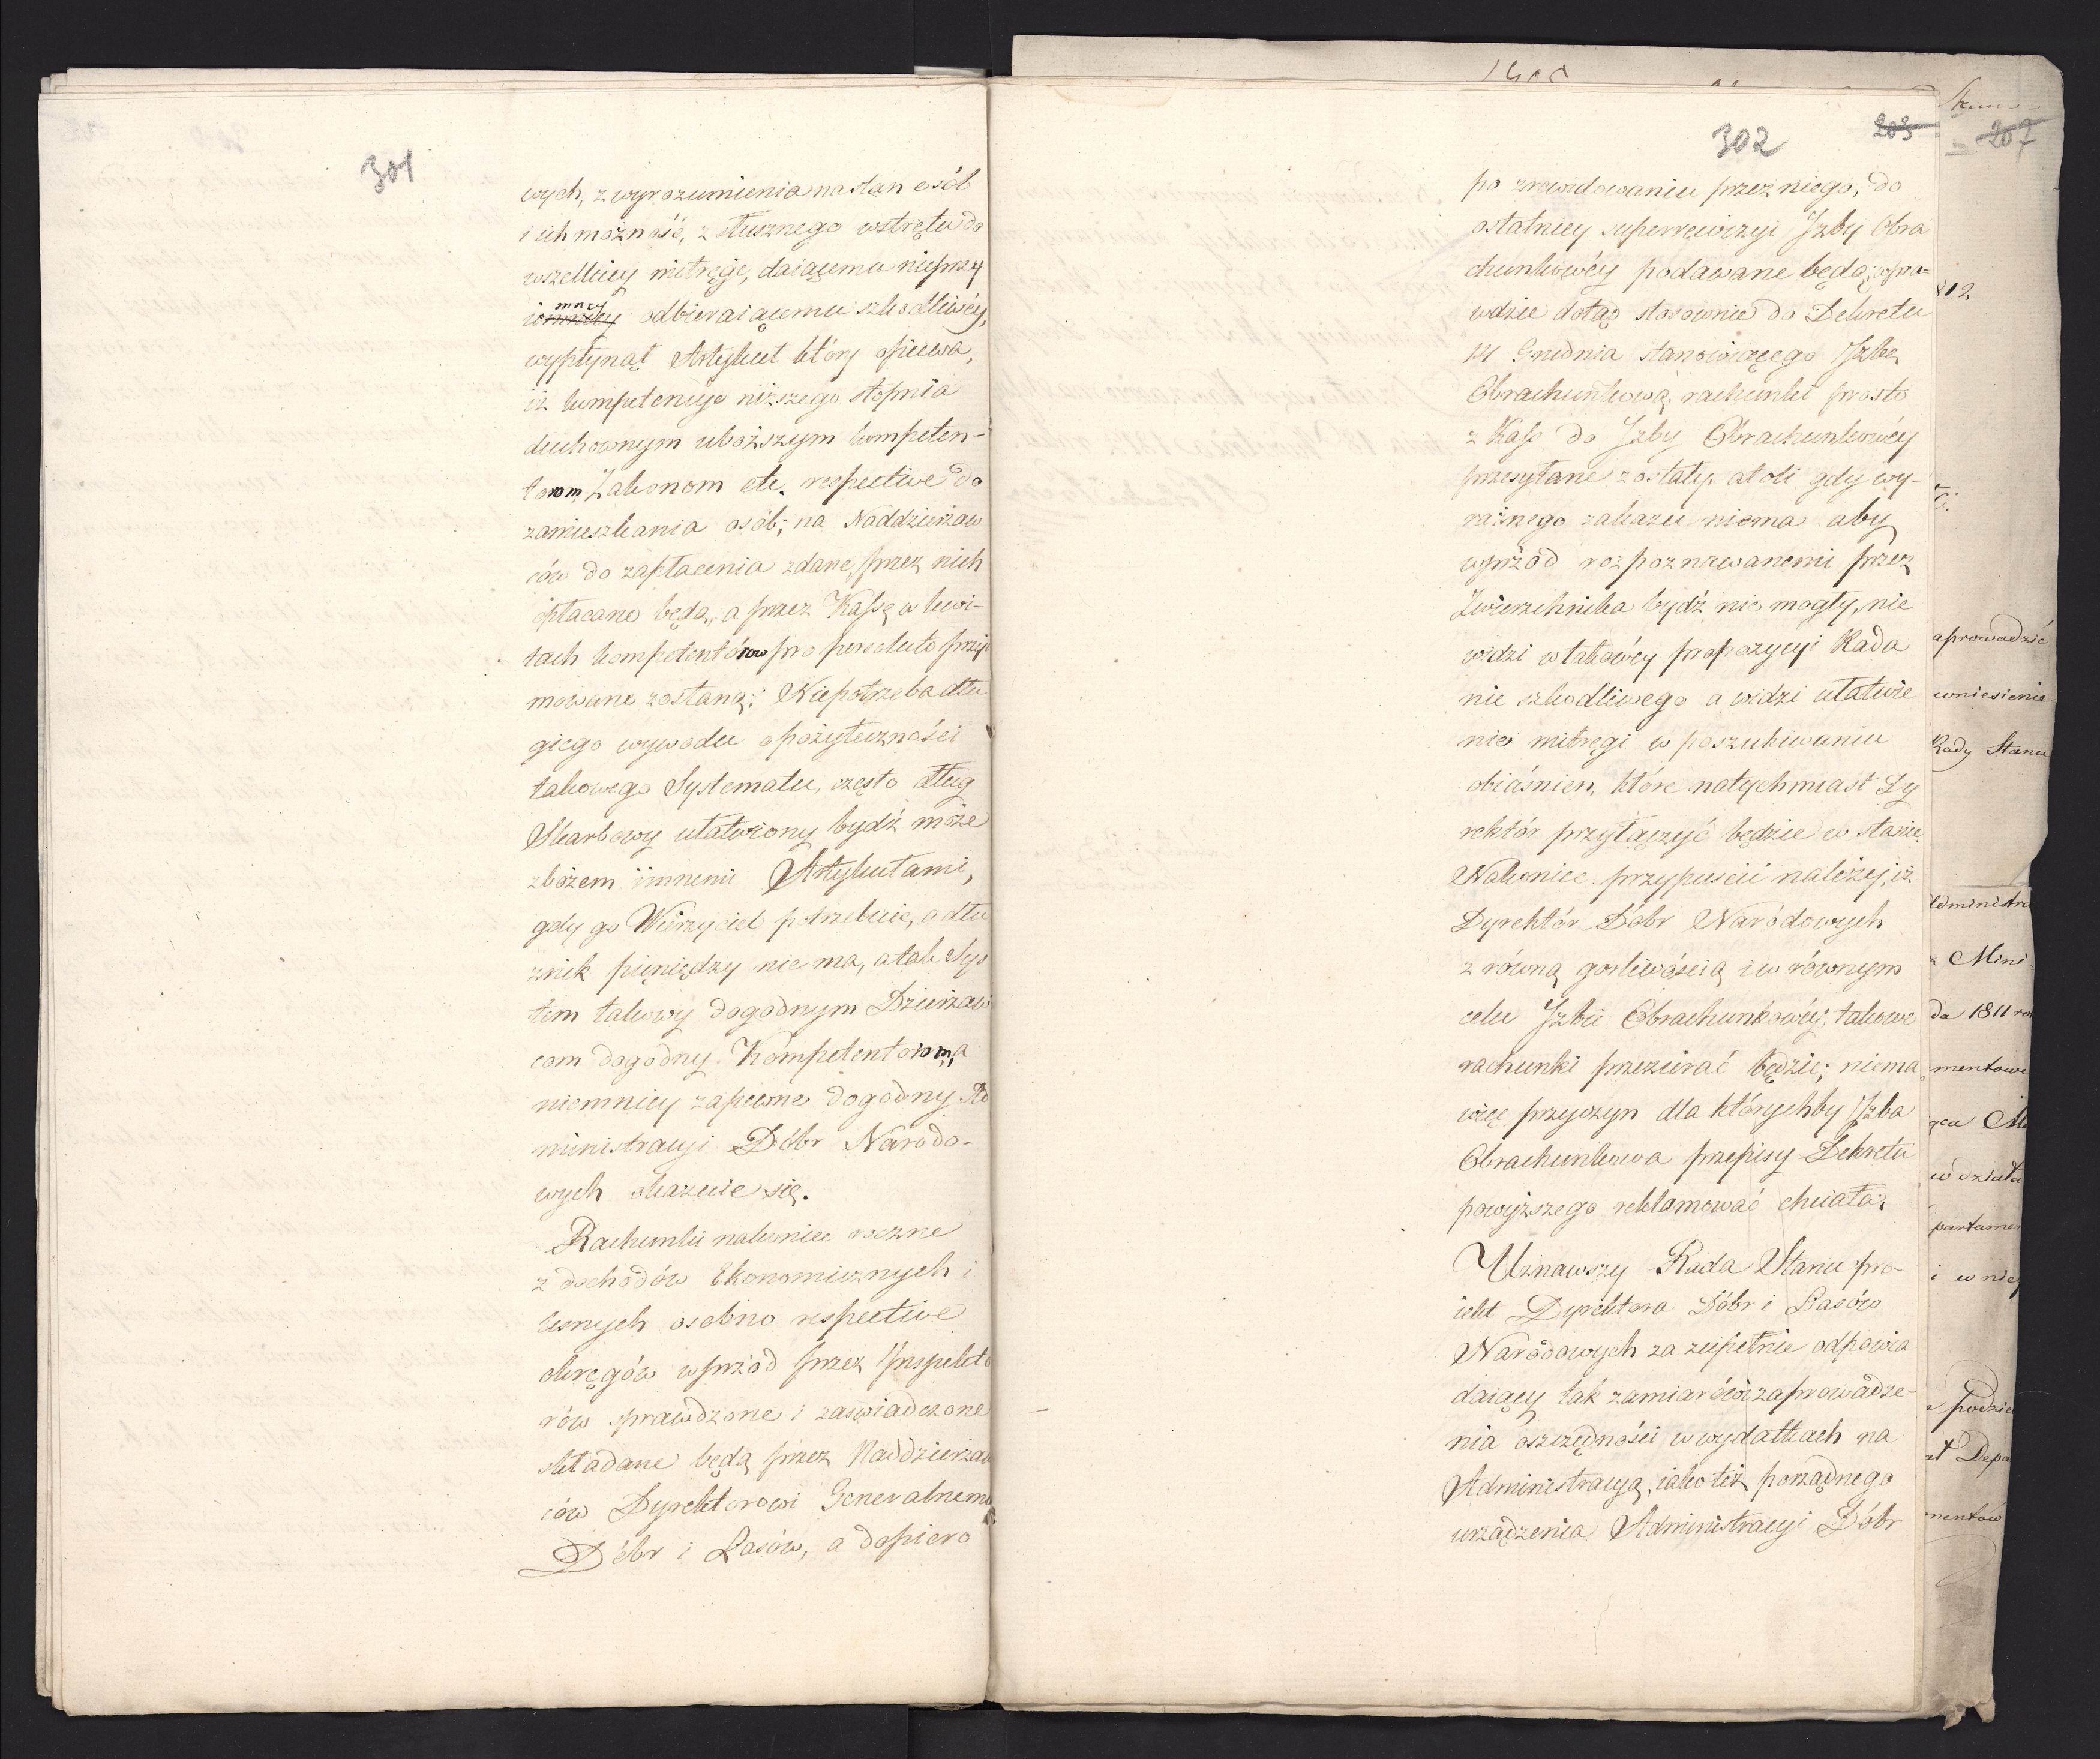 301
wych, z wyrozumienia na stan osób
i ich możność, z słusznego wstrętu do
wszelkiey mitręgi, daiącemu nieprzy
mney odbieraiącemu szkodliwéy,
wypłynął Artykuł który opiewa,
iż kompetencye niższego stopnia
duchownym uboższym kompeten-
torom, Zakonom etc. respective do
zamieszkania osób; na Naddzierżaw
ców do zapłacenia zdane, przez nich
opłacane będą, a przez Kassę w kwi-
tach kompetentorów pro persoluto przyi
mowane zostaną; Niepotrzeba dłu
giego wywodu o pożyteczności
takowego Systematu, często dług
Skarbowy ułatwiony bydź może
zbożem innemi Artykułami,
gdy go Wierzyciel potrzebuie, a dłu
żnik pieniędzy nie ma, a tak Sys
tem takowy dogodnym Dzierżaw
com dogodny Kompetentorom, a
niemniey zapewne dogodny Ad
ministracyi Dóbr Narodo-
wych okazuie się.
Rachunki nakoniec roczne
z dochodów Ekonomicznych i
leśnych osobno respective
okręgów wprzód przez Inspekto
rów sprawdzone i zaswiadczone
składane będą przez Naddzierżaw
ców Dyrektorowi Generalnemu
Dóbr i Lasów, a dopiero
302
203
po zrewidowaniu przez niego, do
ostatniey superrewizyi Izby Obra
chunkowéy podawane będą; wpra-
wdzie dotąd stosownie do Dekretu
14 Grudnia stanowiącego Izbę
Obrachunkową, rachunki prosto
z Kass do Izby Obrachunkowéy
przesyłane zostały, atoli gdy wy-
raźnego zakazu niema aby
wprzód rozpoznawanemi przez
Zwierzchnika bydź nie mogły, nie
widzi w takowéy propozycyi Rada
nic szkodliwego a widzi ułatwie
nie mitręgi w poszukiwaniu
obiaśnien, które natychmiast Dy
rektór przyłączyć będzie w stanie.
Nakoniec przypuscić należy, iż
Dyrektór Dóbr Narodowych
z równą gorliwością i w równym
celu Izbie Obrachunkowéy, takowe
rachunki przezierać będzie; niema
więc przyczyn dla którychby Izba
Obrachunkowa przepisy Dekretu
powyższego reklamować chciała.
Uznawszy Rada Stanu pro-
iekt Dyrektora Dóbr i Lasów
Narodowych za zupełnie odpowia
daiący tak zamiarowi zaprowadze-
nia oszczędności w wydatkach na
Administracyą, iako też porządnego
urządzenia Administracyi Dóbr
207
812
aprowadzić
wniesienie
Rady Stanu
dministra
z Mini
da 1811 ro
mentowe
w działa
partame
i w niey
e podzie
at Depa
mentów